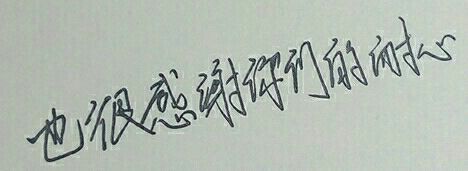 也很感谢你们的耐心